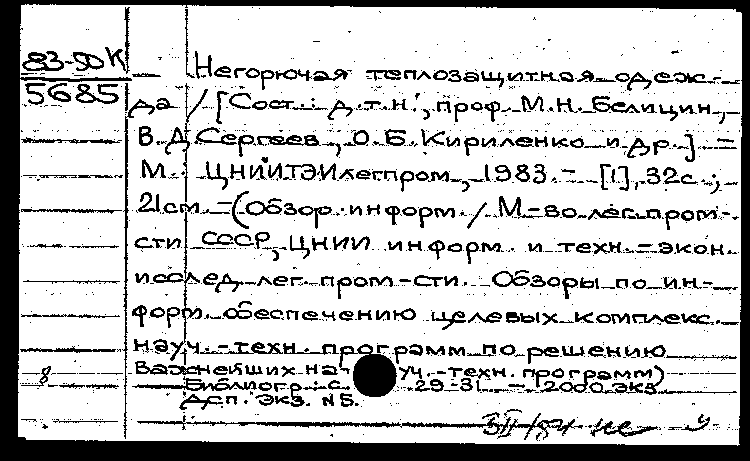 83-50К
5685
Негорючая теплозащитная одеж-
да / [Сост.: д.т.н., проф. М.Н. Белицин,
В.Д. Сергеев, О.Б. Кириленко и др.] -
М.: ЦНИИТЭИлегпром, 1983. - [1], 32с.;
21см. - (Обзор. информ. / М-во лег. пром-
сти СССР, ЦНИИ информ. и техн.-экон.
исслед. лег. пром-сти. Обзоры по ин-
форм. обеспечению целевых комплекс.
науч.-техн. программ по решению
важнейших на уч.-техн. программ)
8
Библиогр.: с. 29-31. - 2000 экз.
Асп. экз. N5.